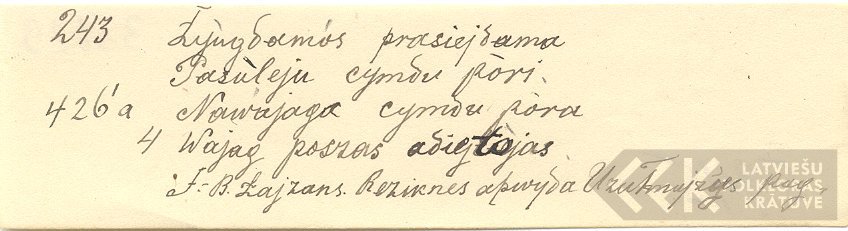 243 Zyugdamos prasiejdama
Pasuleju cymdu pōri.
426'a Nawajaga cymdu pōra
4 Wajag poszas adiejtōjas
F.-B. Zajzans. Reziknes apwyda Uzulmajzys pag.
LATVIEŠU
FOLKLORAS
KRĀTUVE